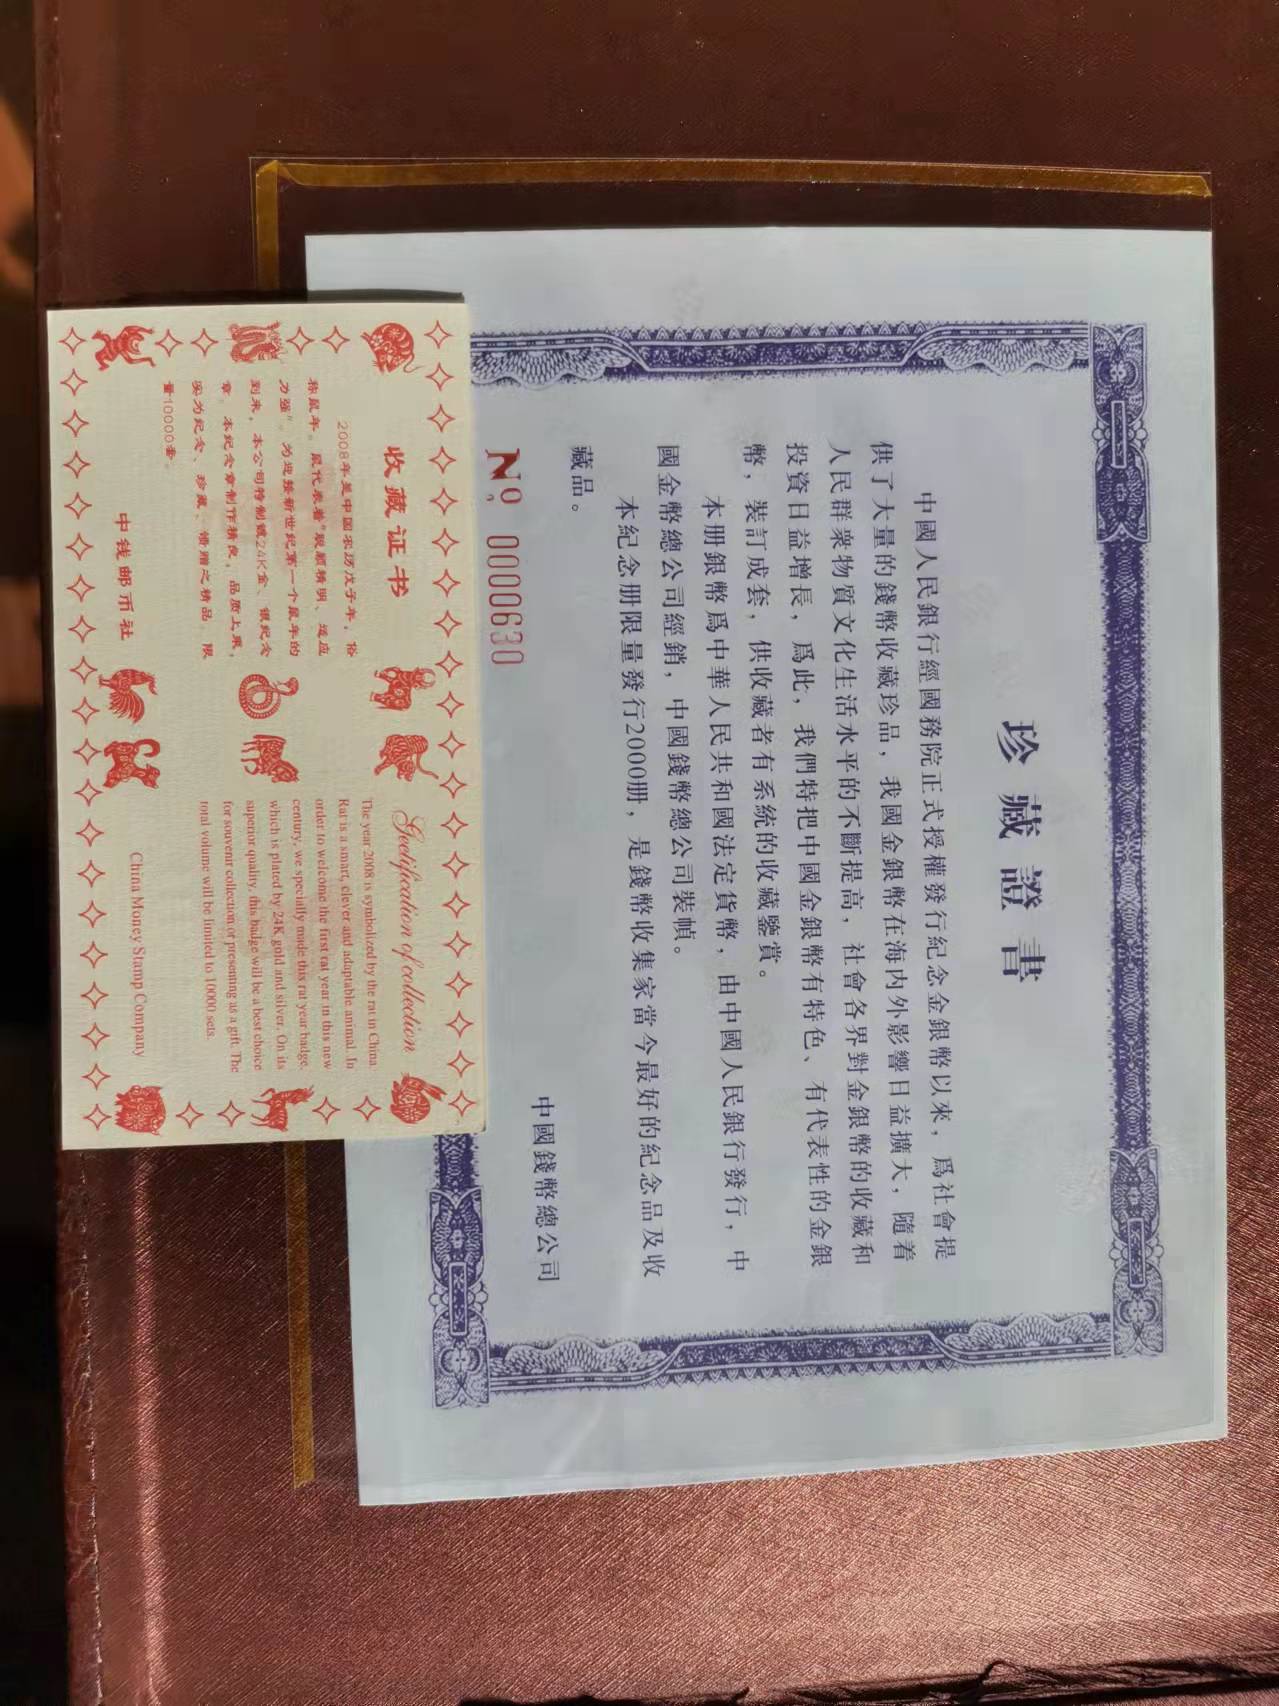 珍藏證書
中國人民銀行經國務院正式授權發行紀念金銀幣以來，爲社會提
供了大量的錢幣收藏珍品，我國金銀幣在海内外影響日益擴大，隨着
人民群衆物質文化生活水平的不斷提高，社會各界對金銀幣的收藏和
投資日益增長，爲此，我們特把中國金銀幣有特色、有代表性的金銀
幣，裝訂成套，供收藏者有系統的收藏鑒賞。
本册銀幣爲中華人民共和國法定貨幣，由中國人民銀行發行，中
國金幣總公司經銷，中國錢幣總公司裝幀。
本紀念册限量發行2000册，是錢幣收集家當今最好的紀念品及收
藏品。
中國錢幣總公司
No 0000630
收藏证书
2008年是中国农历戊子年，俗
称鼠年。鼠代表着“机灵精明、适应
力强”。为迎接新世纪第一个鼠年的
到来，本公司特制镀24K金、银纪念
章。本纪念章制作精良，品质上乘，
实为纪念、珍藏、馈赠之精品，限
量10000套。
中钱邮币社
Gertification of collection
The year 2008 is symbolized by the rat in China.
Rat is a smart, clever and adaptable animal. In
order to welcome the first rat year in this new
century, we specially made this rat year badge,
which is plated by 24K gold and silver. On its
superior quality, this badge will be a best choice
for souvenir collection or presenting as a gift. The
total volume will be limited to 10000 sets.
China Money Stamp Company